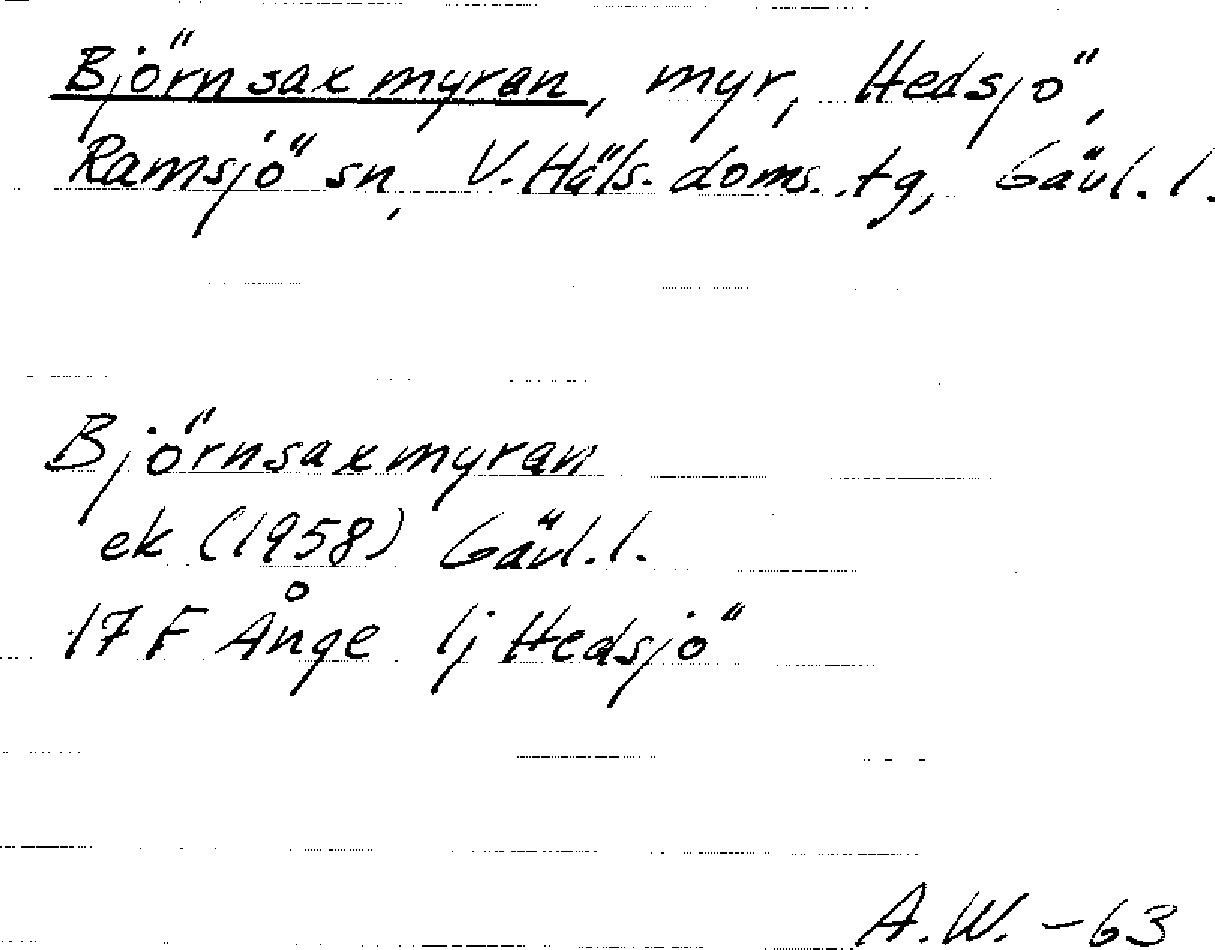 Björnsaxmyran, myr, Hedsjö,
Ramsjö sn, V. Häls. doms. tg, Gävl. l.
Björnsaxmyran
ek (1958) Gävl. l.
17 F Ånge 1j Hedsjö
A.W. -63